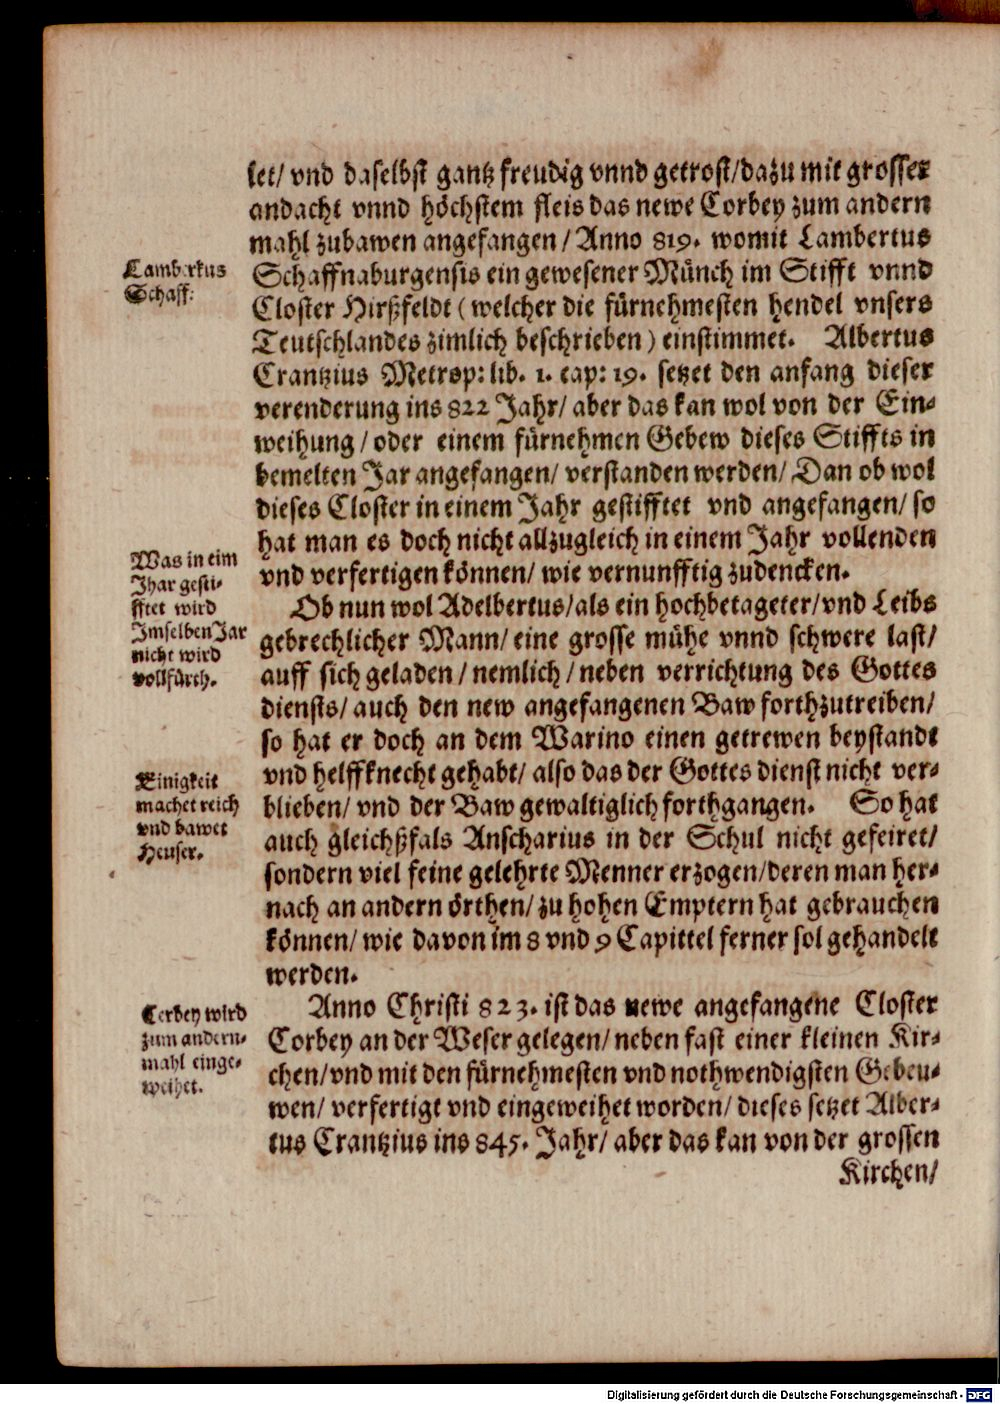 let/ vnd daselbst gantz freudig vnnd getrost/dazu mit grosser
andacht vnnd höchstem fleis das newe Corbey zum andern
mahl zubawen angefangen/ Anno 819. womit Lambertus
Lambertus
Schaff:
Schaffnaburgensis ein gewesener Münch im Stifft vnnd
Closter Hirßfeldt (welcher die fürnehmesten hendel vnsers
Teutschlandes zimlich beschrieben) einstimmet. Albertus
Crantzius Metrop: lib. 1. cap: 19. setzet den anfang dieser
verenderung ins 822 Jahr/ aber das kan wol von der Ein-
weihung/ oder einem fürnehmen Gebew dieses Stiffts in
bemelten Jar angefangen/ verstanden werden/ Dan ob wol
dieses Closter in einem Jahr gestifftet vnd angefangen/ so
hat man es doch nicht allzugleich in einem Jahr vollenden
vnd verfertigen können/ wie vernunfftig zudencken.
Was in eim
Jhar gesti-
fftet wird
Jmselben Jar
nicht wird
vollfürth.
Ob nun wol Adelbertus/als ein hochbetageter/vnd Leibs
gebrechlicher Mann/ eine grosse mühe vnnd schwere last/
auff sich geladen/ nemlich/ neben verrichtung des Gottes
diensts/ auch den new angefangenen Baw forthzutreiben/
so hat er doch an dem Warino einen getrewen beystandt
vnd helffknecht gehabt/ also das der Gottes dienst nicht ver-
blieben/ vnd der Baw gewaltiglich forthgangen. So hat
Einigkeit
machet reich
vnd bawet
Heuser.
auch gleichßfals Anscharius in der Schul nicht gefeiret/
sondern viel feine gelehrte Menner erzogen/deren man her-
nach an andern örthen/ zu hohen Emptern hat gebrauchen
können/ wie davon im 8 vnd 9 Capittel ferner sol gehandelt
werden.
Anno Christi 823. ist das newe angefangene Closter
Corbey wird
zum andern-
mahl einge-
weihet.
Corbey an der Weser gelegen/ neben fast einer kleinen Kir-
chen/vnd mit den fürnehmesten vnd nothwendigsten Gebeu-
wen/ verfertigt vnd eingeweihet worden/ dieses setzet Alber-
tus Crantzius ins 845. Jahr/ aber das kan von der grossen
Kirchen/
Digitalisierung gefördert durch die Deutsche Forschungsgemeinschaft - DFG